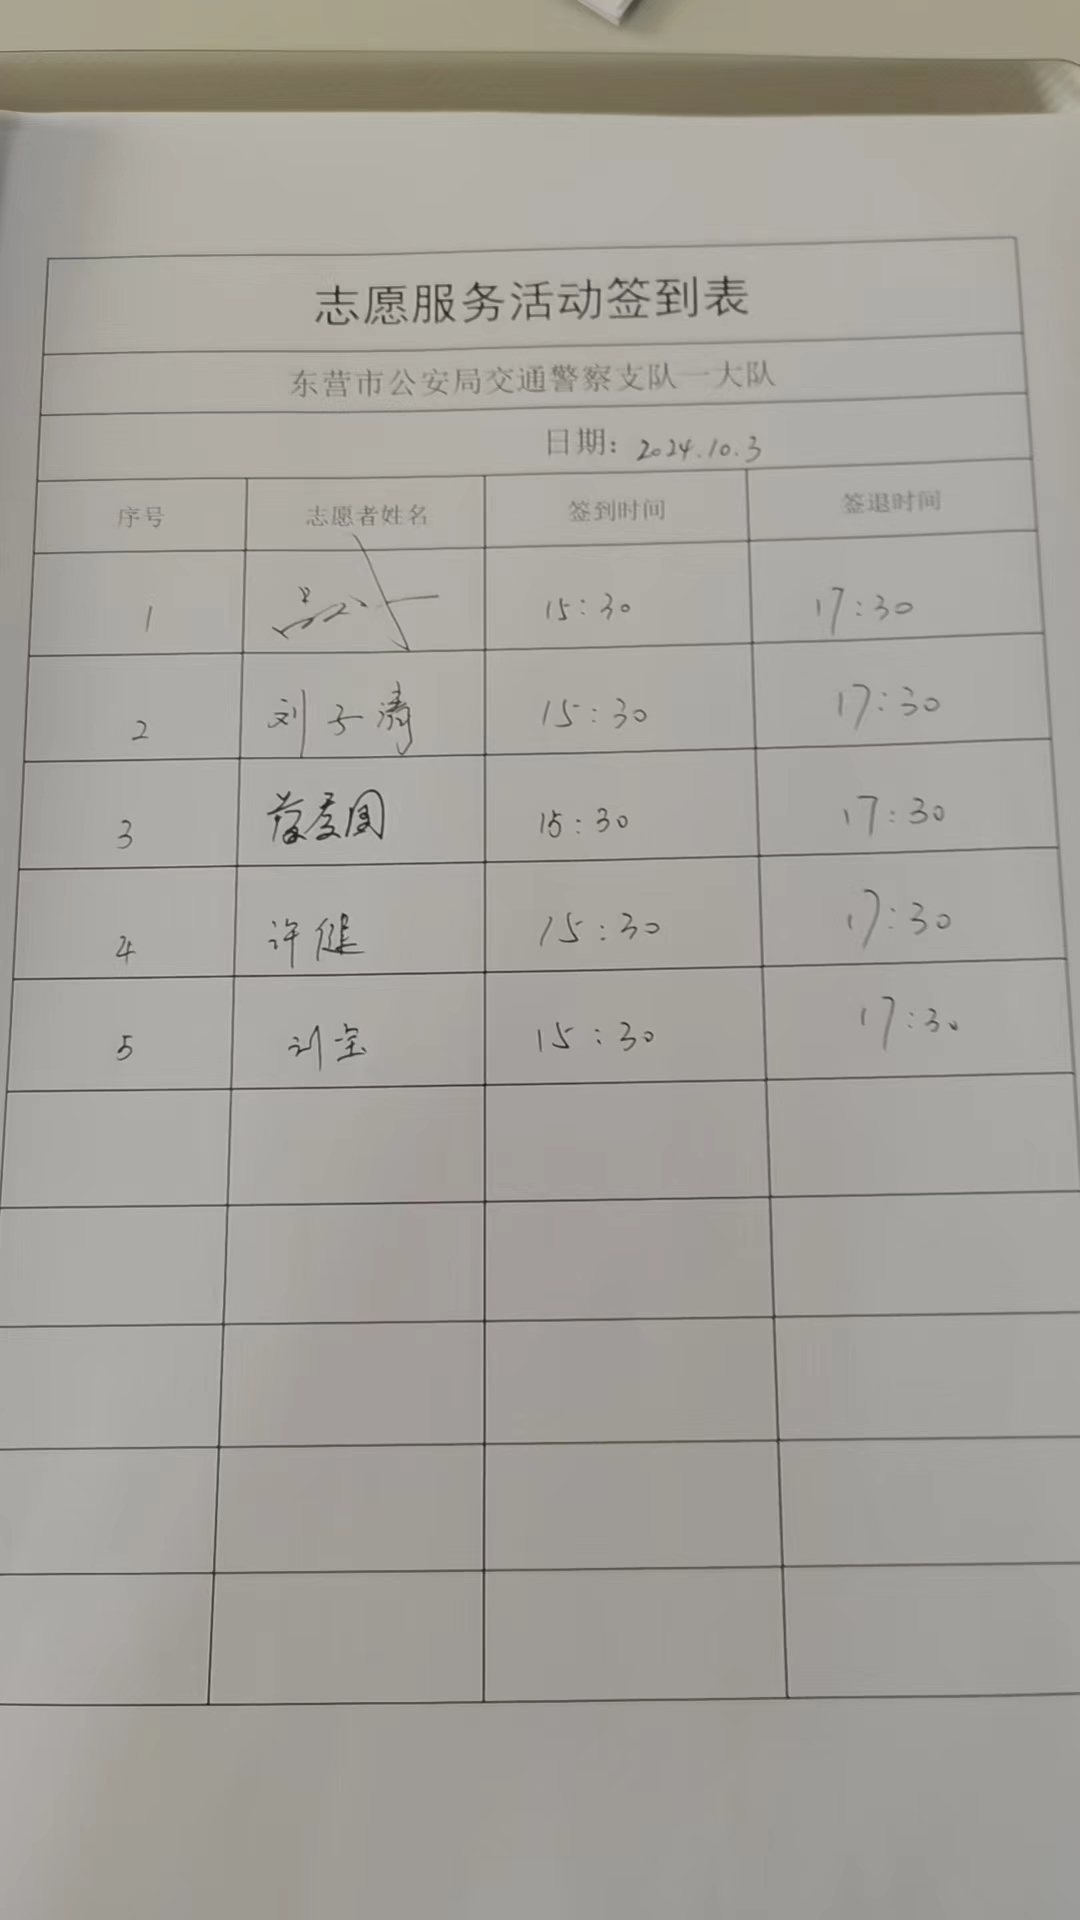 志愿服务活动签到表
东营市公安局交通警察支队一大队
日期：2024.10.3
序号 志愿者姓名 签到时间 签退时间
1 15:30 17:30
2 刘子涛 15:30 17:30
3 15:30 17:30
4 许健 15:30 17:30
5 刘宝 15:30 17:30